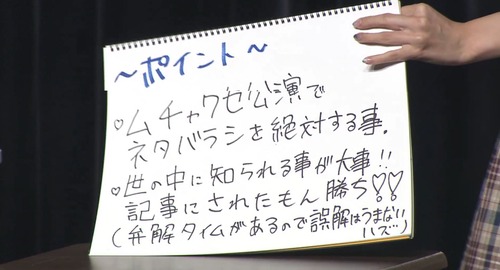 ～ポイント～
♡ムチャクセ公演で
ネタバラシを絶対する事.
♡世の中に知られる事が大事!!
記事にされたもん勝ち♡!♡!
(弁解タイムがあるので誤解はうまない
ハズ…)